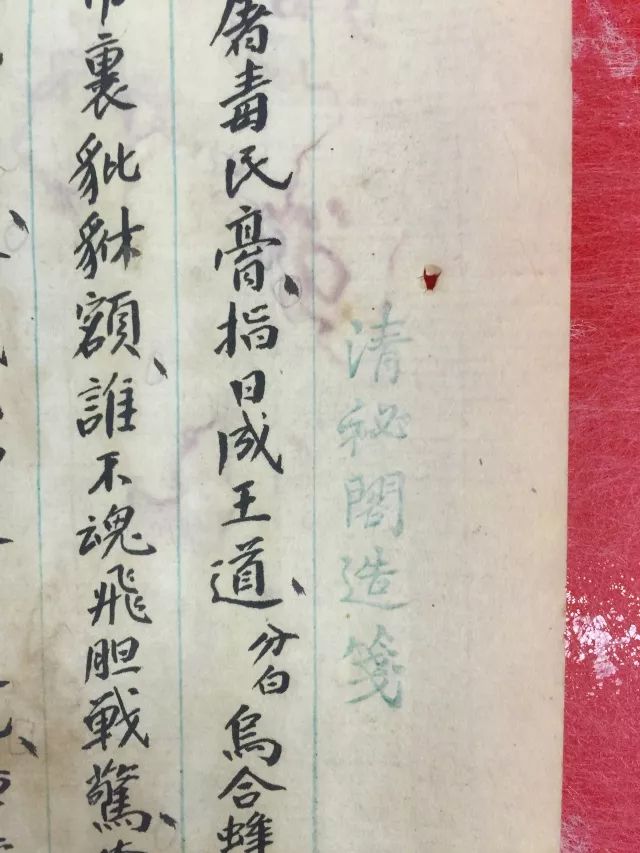 清祕閣造箋
毒民膏、指日成王道、分白烏合蜂
裏貔貅額、誰不魂飛胆戰驚、